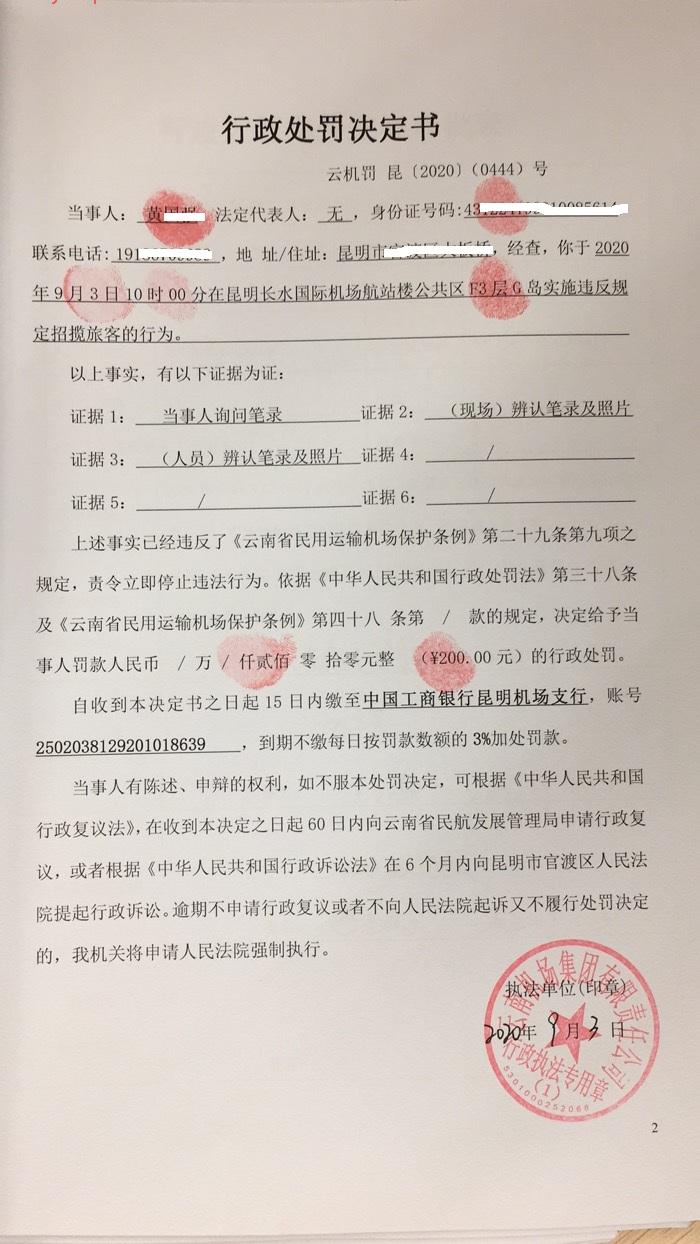 行政处罚决定书
云机罚 昆〔2020〕(0444)号
当事人: 黄 法定代表人: 无 ,身份证号码:
联系电话: ,地 址/住址: 昆明市 ,经查,你于 2020
年 9 月 3 日 10 时 00 分在昆明长水国际机场航站楼公共区 F3 层 G 岛实施违反规
定招揽旅客的行为。
以上事实,有以下证据为证:
证据 1: 当事人询问笔录 证据 2: (现场)辨认笔录及照片
证据 3: (人员)辨认笔录及照片 证据 4: /
证据 5: / 证据 6: /
上述事实已经违反了《云南省民用运输机场保护条例》第二十九条第九项之
规定,责令立即停止违法行为。依据《中华人民共和国行政处罚法》第三十八条
及《云南省民用运输机场保护条例》第四十八 条第 / 款的规定,决定给予当
事人罚款人民币 / 万 / 仟贰佰 零 拾零元整 (¥200.00 元)的行政处罚。
自收到本决定书之日起 15 日内缴至中国工商银行昆明机场支行,账号
2502038129201018639 ,到期不缴每日按罚款数额的 3%加处罚款。
当事人有陈述、申辩的权利,如不服本处罚决定,可根据《中华人民共和国
行政复议法》,在收到本决定之日起 60 日内向云南省民航发展管理局申请行政复
议,或者根据《中华人民共和国行政诉讼法》在 6 个月内向昆明市官渡区人民法
院提起行政诉讼。逾期不申请行政复议或者不向人民法院起诉又不履行处罚决定
的,我机关将申请人民法院强制执行。
执法单位(印章)
2020年 9 月 3 日
云南机场集团有限责任公司
行政执法专用章
(1)
5301000252068
2